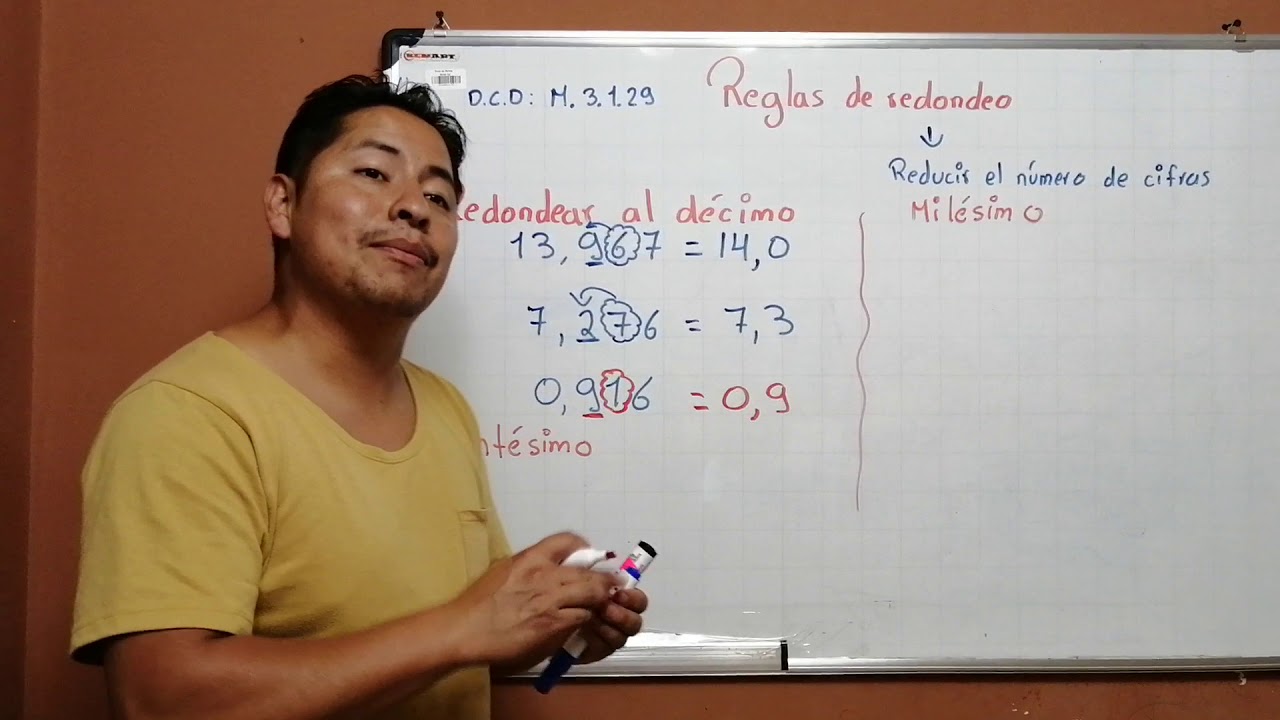 D.C.D: M.3.1.29
Reglas de redondeo
Reducir el número de cifras
Redondear al décimo
13,967 = 14,0
7,276 = 7,3
0,916 = 0,9
Milésimo